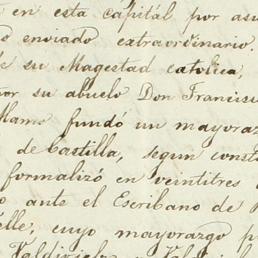 en esta capitál por asu
enviado extraordinario.
su Magestad catolica,
por su abuelo Don Francis
Llamo fundó un mayoraz
de Castilla, segun const
formalizó en veintitres
ante el Escribano de
elle, cuyo mayorazgo p
Valdiviels